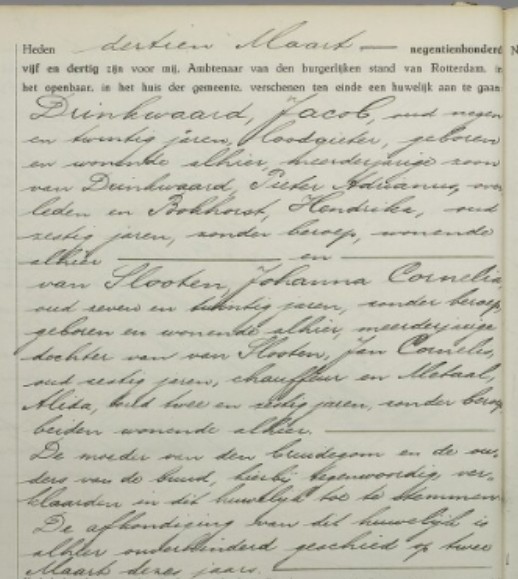 Heden dertien Maart — negentienhonderd
vijf en dertig zijn voor mij, Ambtenaar van den burgerlijken stand van Rotterdam, in
het openbaar, in het huis der gemeente, verschenen ten einde een huwelijk aan te gaan:
Drinkwaard, Jacob, oud negen
en twintig jaren, loodgieter, geboren
en wonende alhier, meerderjarige zoon
van Drinkwaard, Pieter Adrianus, over
leden en Bokhorst, Hendrika, oud
zestig jaren, zonder beroep, wonende
alhier — en —
van Slooten, Johanna Cornelia,
oud zeven en twintig jaren, zonder beroep,
geboren en wonende alhier, meerderjarige
dochter van van Slooten, Jan Cornelis,
oud zestig jaren, chauffeur en Metaal,
Alida, oud twee en zestig jaren, zonder beroep
beiden wonende alhier. —
De moeder van den bruidegom en de ou-
ders van de bruid, hierbij tegenwoordig ver-
klaarden in dit huwelijk toe te stemmen
De afkondiging van dit huwelijk is
alhier onverhinderd geschied op twee
Maart dezes jaars. —